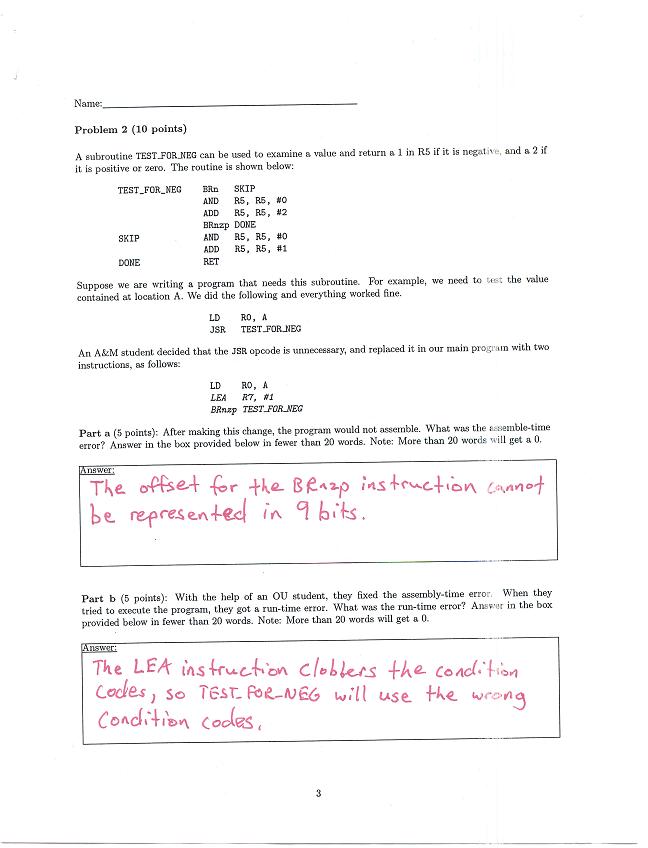 Name:
Problem 2 (10 points)
A subroutine TEST_FOR_NEG can be used to examine a value and return a 1 in R5 if it is negative, and a 2 if
it is positive or zero. The routine is shown below:
TEST_FOR_NEG BRn SKIP
AND R5, R5, #0
ADD R5, R5, #2
BRnzp DONE
SKIP AND R5, R5, #0
ADD R5, R5, #1
DONE RET
Suppose we are writing a program that needs this subroutine. For example, we need to test the value
contained at location A. We did the following and everything worked fine.
LD R0, A
JSR TEST_FOR_NEG
An A&M student decided that the JSR opcode is unnecessary, and replaced it in our main program with two
instructions, as follows:
LD R0, A
LEA R7, #1
BRnzp TEST_FOR_NEG
Part a (5 points): After making this change, the program would not assemble. What was the assemble-time
error? Answer in the box provided below in fewer than 20 words. Note: More than 20 words will get a 0.
Answer:
The offset for the BRnzp instruction cannot
be represented in 9 bits.
Part b (5 points): With the help of an OU student, they fixed the assembly-time error. When they
tried to execute the program, they got a run-time error. What was the run-time error? Answer in the box
provided below in fewer than 20 words. Note: More than 20 words will get a 0.
Answer:
The LEA instruction clobbers the condition
codes, so TEST_FOR_NEG will use the wrong
condition codes.
3